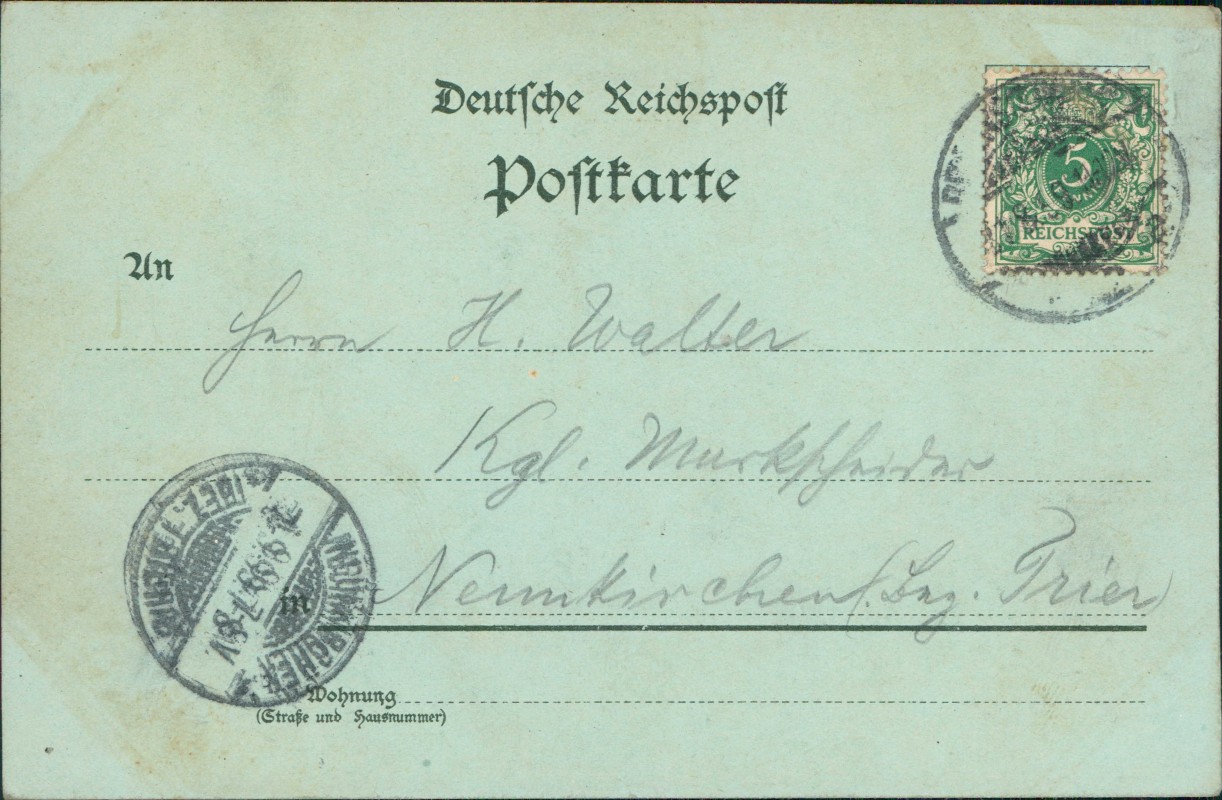 Deutsche Reichspost
Postkarte
5
REICHSPOST
An
Herrn H. Walter
Kgl. Markscheider
in Neunkirchen (Bez. Trier)
Wohnung
(Straße und Hausnummer)